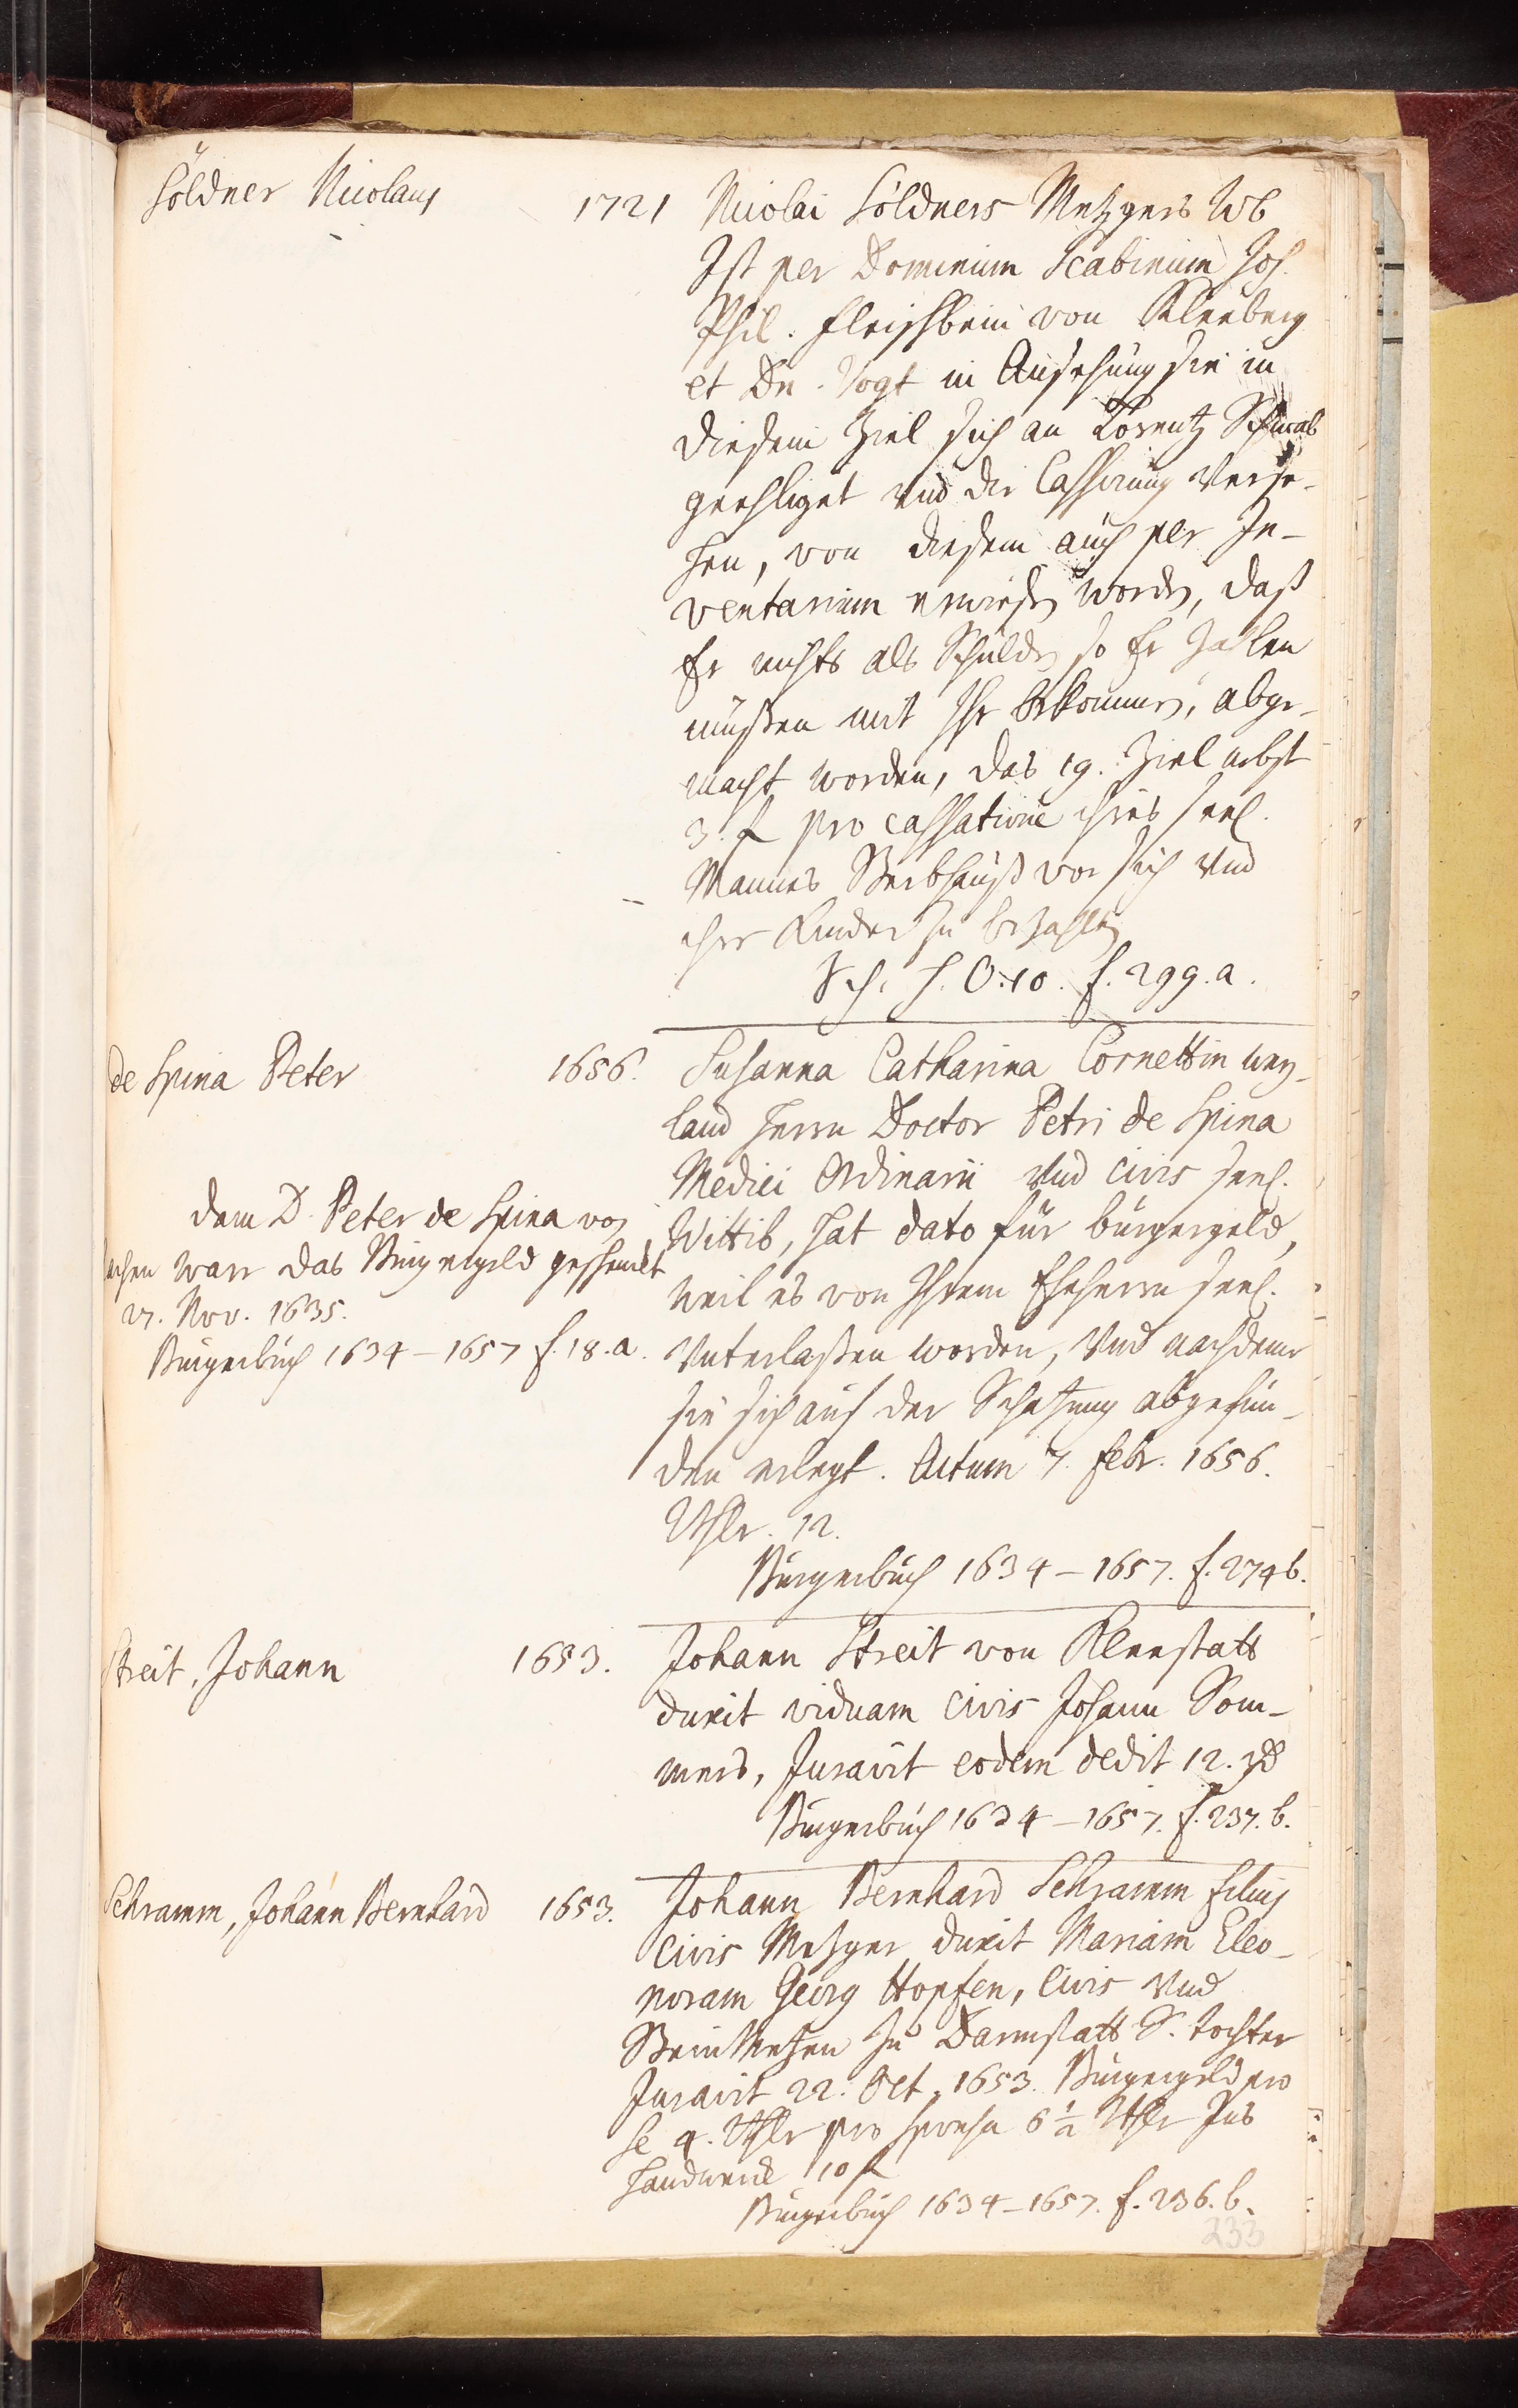 Söldner Nicolaus
1721 Nicolai Söldners Metzgers Wb
Ist per Dominum Scabinum Joh.
Phil. Fleischbein von Kleeberg
et Dn. Vogt in Ansehung sie in
diesem Ziel sich an Lorentz Schwab
geehliget und die Cassirung verse-
hen, von diesem auch per In-
ventarium erwiesen worden, daß
Er nichts als Schulden so Er zahlen
müßen mit Ihr bekommen, abge-
macht worden, das 19. Ziel nebst
3. f pro cassatione ihres seel.
Mannes Sterbhauß vor sich und
ihre Kinder zu bezahlen
f. 299. a.
de Spina Peter
1656. Susanna Catharina Cornettin wey-
land Herrn Doctor Petri de Spina
Medici Ordinarii und civis seel.
Wittib, hat dato für bürgergeld,
weil es von Ihrem Eheherrn seel.
unterlaßen worden, und nachdeme
sie sich auf der Schatzung abgefun-
den erlegt. Actum 7. Febr. 1656.
Rthlr. 12.
Bürgerbuch 1634 – 1657. f. 274 b.
dem D. Peter de Spina von
Aachen war das Bürgergeld geschenckt
27. Nov. 1635.
Bürgerbuch 1634 – 1657 f. 18. a.
Streit, Johann
1653. Johann Streit von Kleestatt
duxit viduam civis Johann Som-
mers, Juravit eodem dedit 12.
Bürgerbuch 1634 – 1657. f. 237. b.
Schramm, Johann Bernhard
1653. Johann Bernhard Schramm filius
civis Metzger duxit Mariam Eleo-
noram Georg Hopfen, Civis und
Steinmetzen zu Darmstatt S. tochter
Juravit 22. Oct. 1653. Bürgergeld pro
se 4. Rthlr pro sponsa 6 ½ Rthlr Ins
Handwerck 10 f
Bürgerbuch 1634 – 1657. f. 236. b.
233